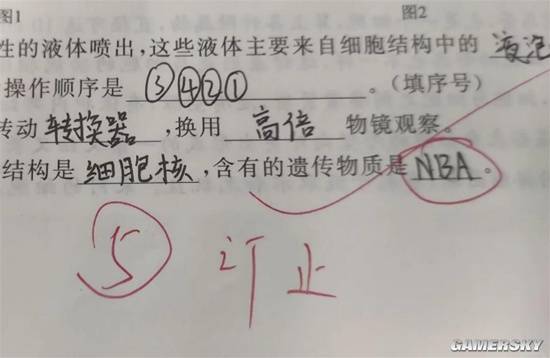 图1 图2
性的液体喷出,这些液体主要来自细胞结构中的 液泡
操作顺序是 ③④②① 。(填序号)
转动 转换器 ,换用 高倍 物镜观察。
结构是 细胞核 ,含有的遗传物质是 NBA 。
5 订正
GAMERSKY